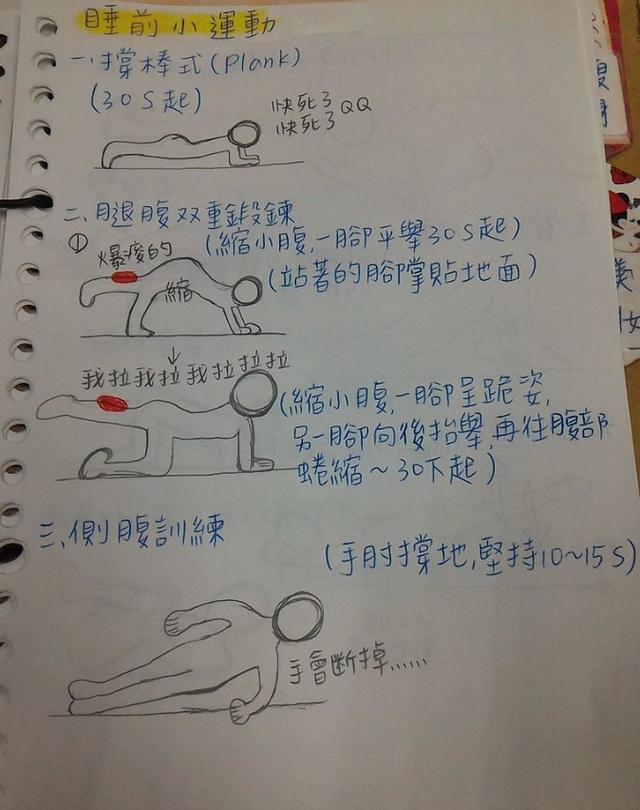 睡前小運動
一、撐棒式(Plank)
(30S起)
快死了QQ
快死了
二、腿腹双重鍛鍊
① 爆痠的
(縮小腹,一腳平舉30S起)
(站著的腳掌貼地面)
縮
我拉我拉我拉拉拉
(縮小腹,一腳呈跪姿,
另一腳向後抬舉,再往腹部
蜷縮~30下起)
三、側腹訓練
(手肘撐地,堅持10~15S)
手會斷掉......
美